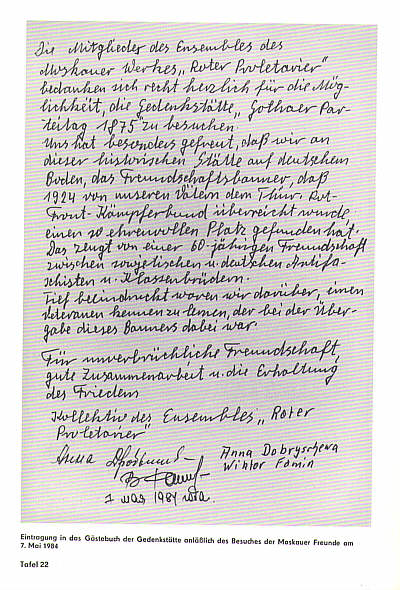 Die Mitglieder des Ensembles des
Moskauer Werkes „Roter Proletarier"
bedanken sich recht herzlich für die Mög-
lichkeit, die Gedenkstätte „Gothaer Par-
teitag 1875" zu besuchen.
Uns hat besonders gefreut, daß wir an
dieser historischen Stätte auf deutschem
Boden, das Freundschaftsbanner, daß
1924 von unseren Vätern dem Thür. Rot-
Front-Kämpferbund überreicht wurde,
einen so ehrenvollen Platz gefunden hat.
Das zeugt von einer 60-jährigen Freundschaft
zwischen sowjetischen u. deutschen Antifa-
schisten u. Klassenbrüdern.
Tief beeindruckt waren wir darüber, einen
Veteranen kennen zu lernen, der bei der Über-
gabe dieses Banners dabei war.
Für unverbrüchliche Freundschaft,
gute Zusammenarbeit u. die Erhaltung
des Friedens
Kollektiv des Ensembles „Roter
Proletarier"
Anna Dobryschewa
Wiktor Fomin
7 мая 1984 года.
Eintragung in das Gästebuch der Gedenkstätte anläßlich des Besuches der Moskauer Freunde am
7. Mai 1984
Tafel 22